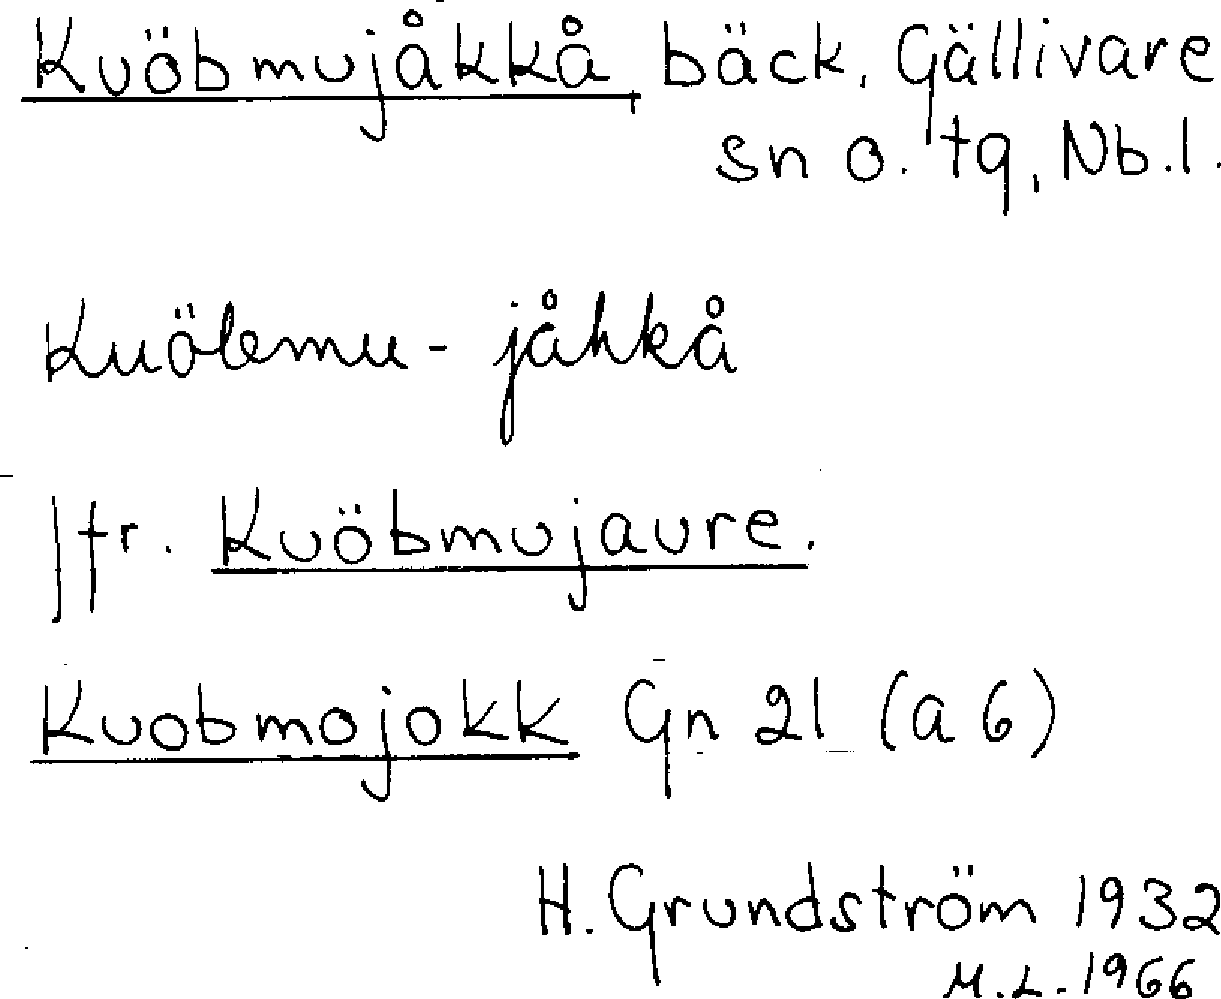 Kuöbmujåkkå bäck, Gällivare
sn o. tg, Nb.l.
Kuöbmu-jåhkå
Jfr. Kuöbmujaure.
Kuobmojokk Gn 21 (a 6)
H. Grundström 1932
M.L. 1966